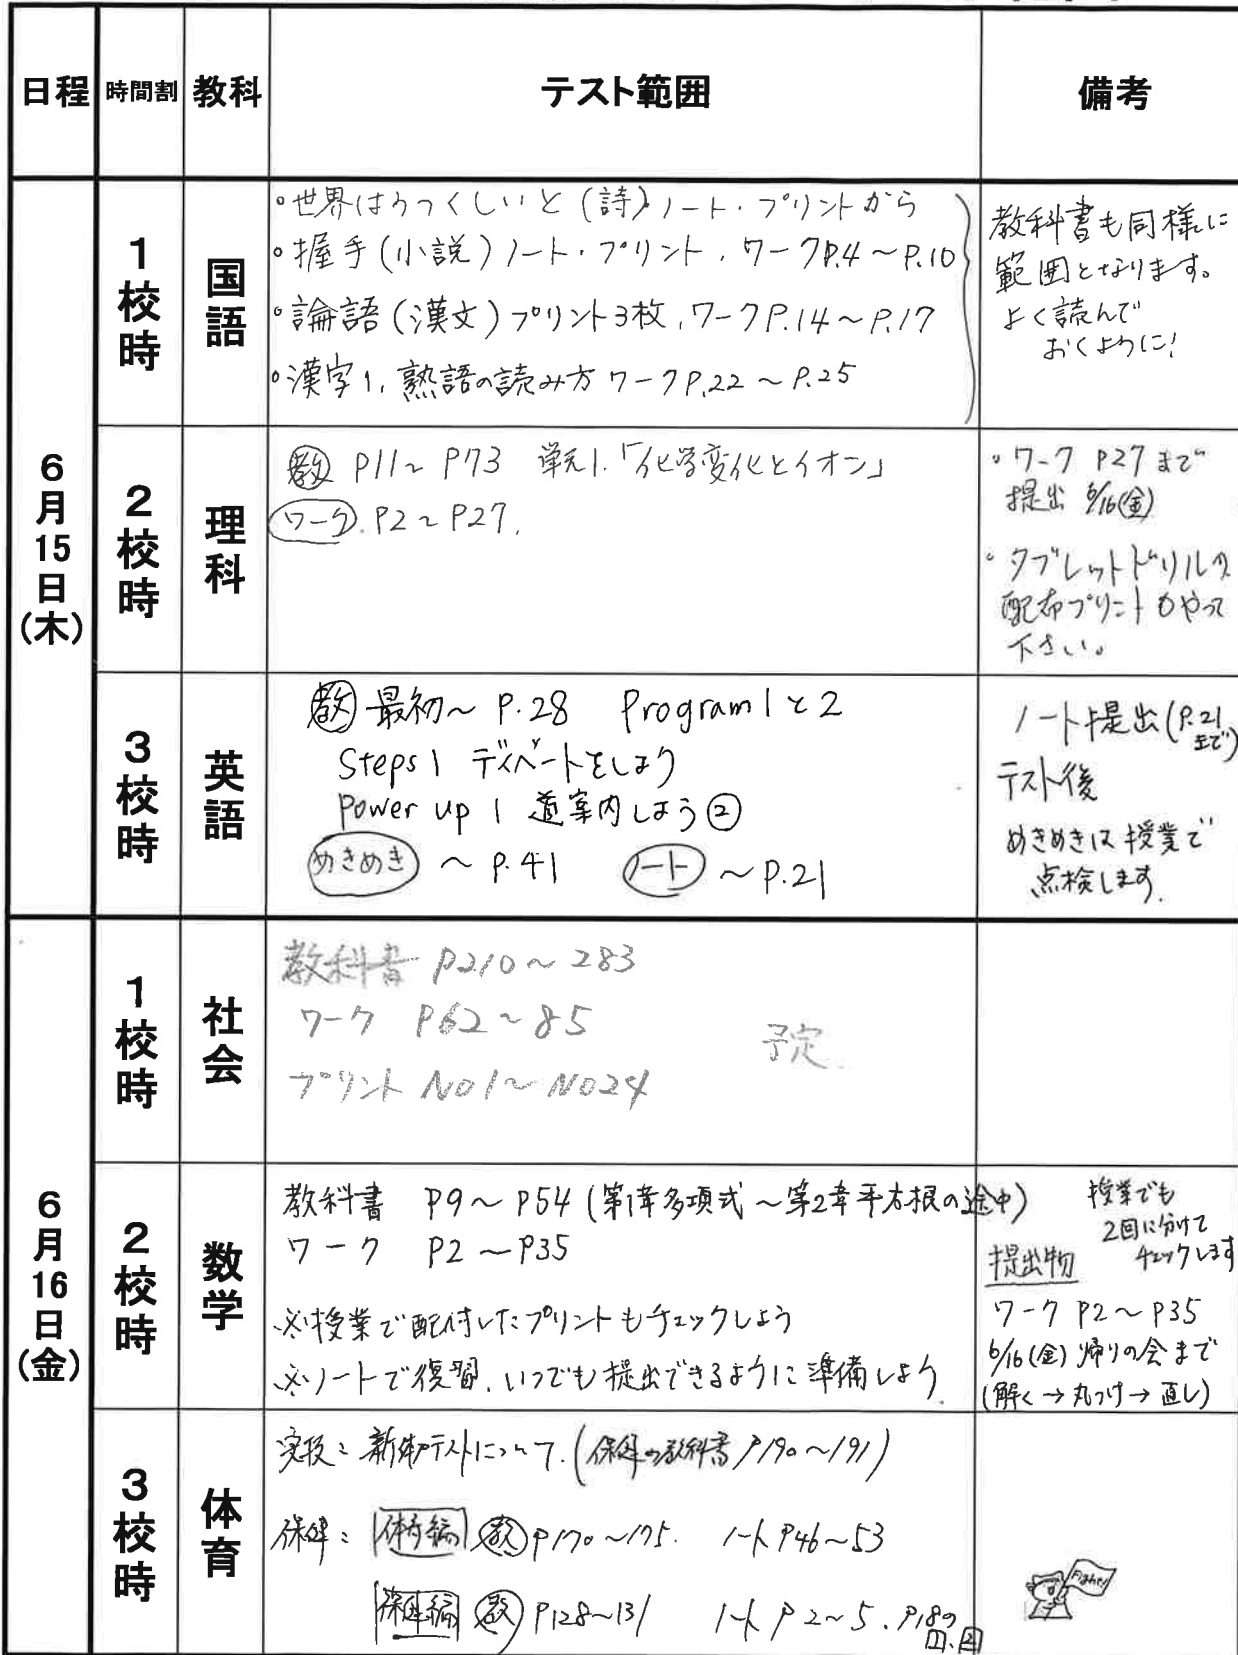 日程 時間割 教科 テスト範囲 備考
6月15日(木)
1校時 国語
・世界はうつくしいと(詩)ノート・プリントから
・握手(小説)ノート・プリント、ワークP.4〜P.10
・論語(漢文)プリント3枚、ワークP.14〜P.17
・漢字1、熟語の読み方 ワークP.22〜P.25
教科書も同様に
範囲となります。
よく読んで
おくように!
2校時 理科
教 P11〜P73 単元1.「化学変化とイオン」
ワーク.P2〜P27.
・ワーク P27まで
提出 6/16(金)
・タブレットドリルの
配布プリントもやって
下さい。
3校時 英語
教 最初〜P.28 Program1と2
Steps1 ディベートをしよう
Power up 1 道案内しよう②
めきめき 〜P.41 ノート 〜P.21
ノート提出(P.21まで)
テスト後
めきめきは授業で
点検します.
6月16日(金)
1校時 社会
教科書 P210〜283
ワーク P62〜85
予定
プリント NO1〜NO24
2校時 数学
教科書 P9〜P54(第1章多項式〜第2章平方根の途中)
ワーク P2〜P35
※授業で配付したプリントもチェックしよう
※ノートで復習、いつでも提出できるように準備しよう
授業でも
2回に分けて
チェックします
提出物
ワーク P2〜P35
6/16(金)帰りの会まで
(解く→丸つけ→直し)
3校時 体育
実技:新体テストについて.(保健の教科書 P190〜191)
保健:体育編 教 P170〜175. ノート P46〜53
保健編 教 P128〜131 ノート P2〜5、P18の1、2
Fight!